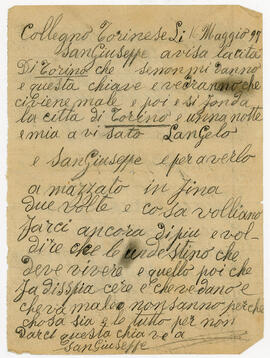 Collegno Torinese Li 1 Maggio 98
SanGiuseppe avisa lacità
Di Torino che senon mi danno
e questa chiave e vedranno che
civiene male e poi e si fonda
la città di Torino e unna notte
e mia avi sato Langelo
e sanGiuseppe e per averlo
a mazzato in fina
due volte e cosa volliano
farci ancora di piu e vol
dire che le undestino che
deve vivere e quello poi che
fa disspia cere e chevedano e
cheva male e nonsanno perche
chosa sia e le tutto per non
Darci questa chiave a
SanGiuseppe